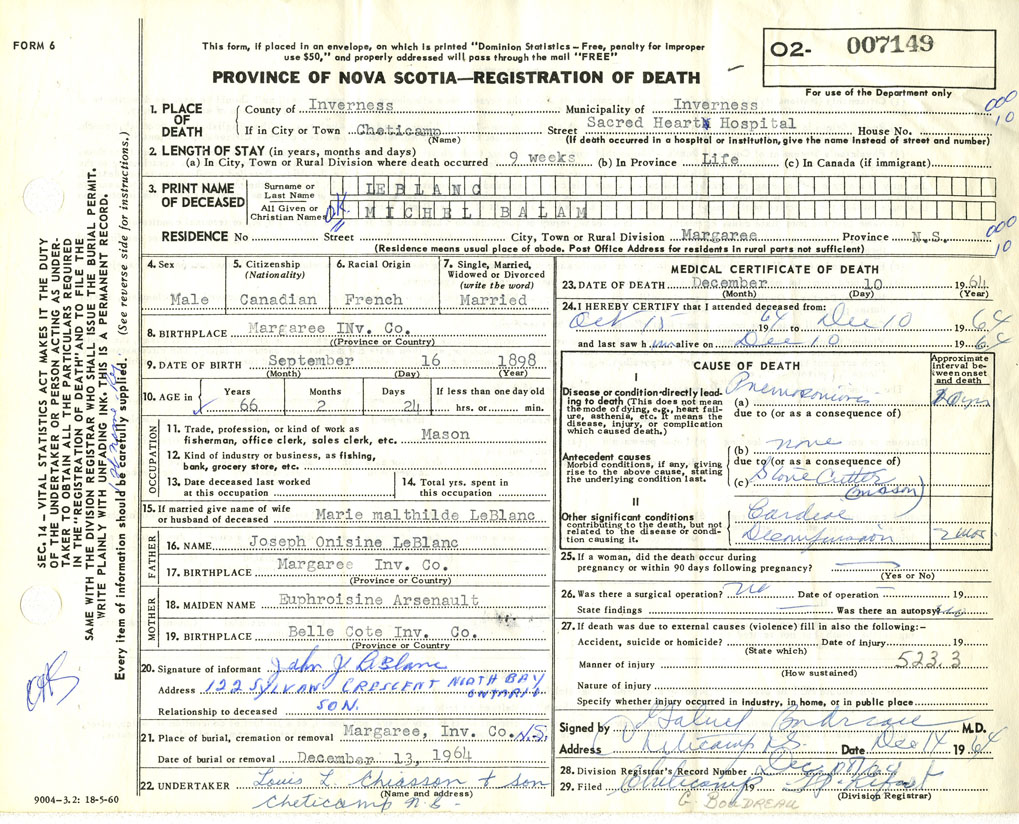 FORM 6
This form, if placed in an envelope, on which is printed "Dominion Statistics – Free, penalty for improper
use $50," and properly addressed will pass through the mail "FREE"
PROVINCE OF NOVA SCOTIA—REGISTRATION OF DEATH
O2- 007149
For use of the Department only
1. PLACE OF DEATH
County of Inverness Municipality of Inverness
Sacred Heart Hospital
If in City or Town Cheticamp Street House No.
(Name) (If death occurred in a hospital or institution, give the name instead of street and number)
000
10
2. LENGTH OF STAY (in years, months and days)
(a) In City, Town or Rural Division where death occurred 9 weeks (b) In Province Life (c) In Canada (if immigrant)
3. PRINT NAME OF DECEASED
Surname or Last Name LEBLANC
All Given or Christian Names OK MICHEL BALAM
RESIDENCE No Street City, Town or Rural Division Margaree Province N.S.
(Residence means usual place of abode. Post Office Address for residents in rural parts not sufficient)
000
10
4. Sex
Male
5. Citizenship
(Nationality)
Canadian
6. Racial Origin
French
7. Single, Married,
Widowed or Divorced
(write the word)
Married
8. BIRTHPLACE Margaree INv. Co.
(Province or Country)
9. DATE OF BIRTH September 16 1898
(Month) (Day) (Year)
10. AGE in Years Months Days If less than one day old
66 2 24 hrs. or min.
OCCUPATION
11. Trade, profession, or kind of work as
fisherman, office clerk, sales clerk, etc. Mason
12. Kind of industry or business, as fishing,
bank, grocery store, etc.
13. Date deceased last worked
at this occupation
14. Total yrs. spent in
this occupation
15. If married give name of wife
or husband of deceased Marie malthilde LeBlanc
FATHER
16. NAME Joseph Onisine LeBlanc
17. BIRTHPLACE Margaree Inv. Co.
(Province or Country)
MOTHER
18. MAIDEN NAME Euphroisine Arsenault
19. BIRTHPLACE Belle Cote Inv. Co.
(Province or Country)
20. Signature of informant John J LeBlanc
Address 122 SYLVAN CRESCENT NORTH BAY
ONTARIO
Relationship to deceased SON.
21. Place of burial, cremation or removal Margaree, Inv. Co. N.S.
Date of burial or removal December 13, 1964
22. UNDERTAKER Louis L Chiasson + son
(Name and address)
Cheticamp N.S.
MEDICAL CERTIFICATE OF DEATH
23. DATE OF DEATH December 10 1964
(Month) (Day) (Year)
24. I HEREBY CERTIFY that I attended deceased from:
Oct 15 1964 to Dec 10 1964
and last saw him alive on Dec 10 1964
CAUSE OF DEATH
Approximate interval between onset and death
I
Disease or condition directly leading to death (This does not mean
the mode of dying, e.g., heart failure, asthenia, etc. It means the
disease, injury, or complication
which caused death.)
(a) Pneumoconiosis
due to (or as a consequence of)
Antecedent causes
Morbid conditions, if any, giving
rise to the above cause, stating
the underlying condition last.
(b) none
due to (or as a consequence of)
(c) Stone Cutter
(mason)
II
Other significant conditions
contributing to the death, but not
related to the disease or condition causing it.
Cardiac
Decompensation 2 mos
25. If a woman, did the death occur during
pregnancy or within 90 days following pregnancy?
(Yes or No)
26. Was there a surgical operation? No Date of operation 19
State findings Was there an autopsy?
27. If death was due to external causes (violence) fill in also the following:–
Accident, suicide or homicide? Date of injury 19
(State which)
523.3
Manner of injury
(How sustained)
Nature of injury
Specify whether injury occurred in industry, in home, or in public place
Signed by J Gabriel Boudreau M.D.
Address Cheticamp N.S. Date Dec 14 1964
28. Division Registrar's Record Number
29. Filed 19
(Division Registrar)
G. BOUDREAU
SEC. 14 – VITAL STATISTICS ACT MAKES IT THE DUTY
OF THE UNDERTAKER OR PERSON ACTING AS UNDERTAKER TO OBTAIN ALL THE PARTICULARS REQUIRED
IN THE "REGISTRATION OF DEATH" AND TO FILE THE
SAME WITH THE DIVISION REGISTRAR WHO SHALL ISSUE THE BURIAL PERMIT.
WRITE PLAINLY WITH UNFADING INK. THIS IS A PERMANENT RECORD.
Every item of information should be carefully supplied. (See reverse side for instructions.)
9004-3.2: 18-5-60